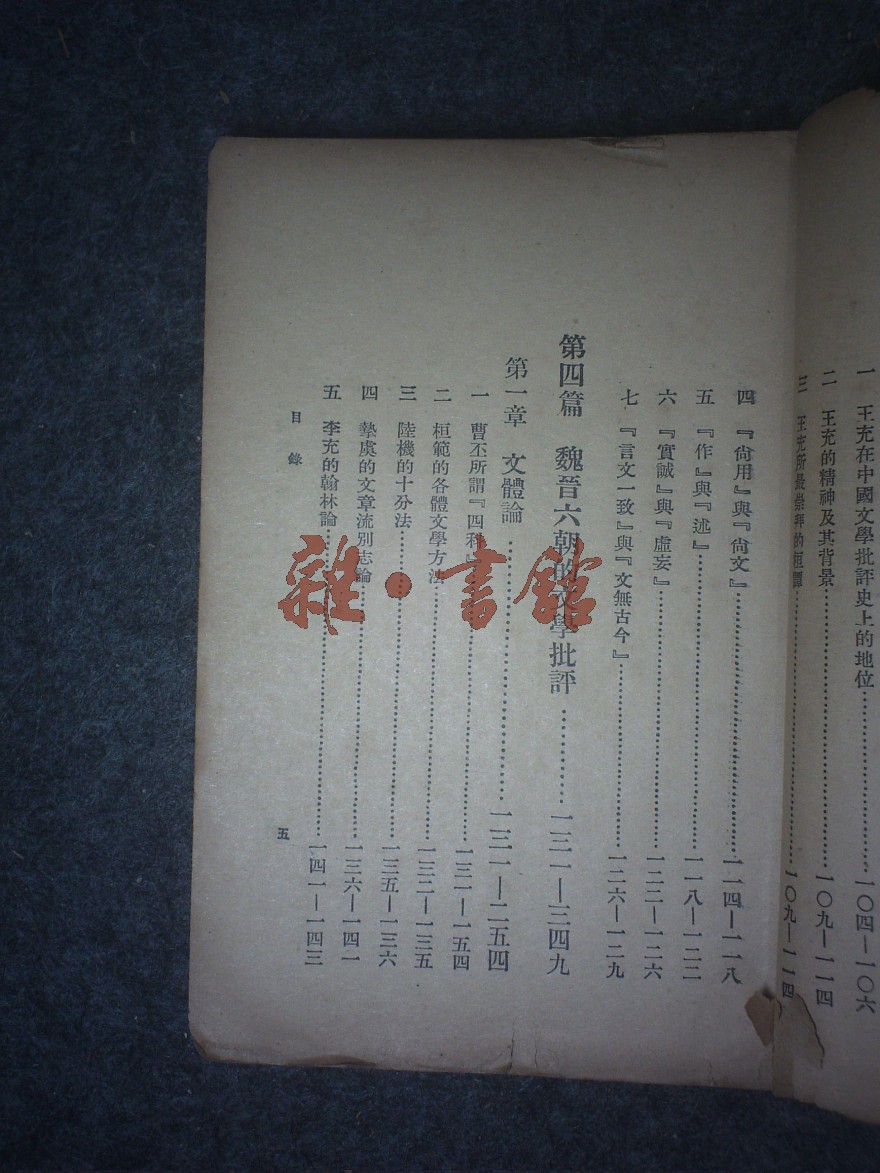 一　王充在中國文學批評史上的地位……一〇四—一〇六
二　王充的精神及其背景……一〇九—一一四
三　王充所最崇拜的桓譚……一〇九—一一四
四　『尙用』與『尙文』……一一四—一一八
五　『作』與『述』……一一八—一二二
六　『實誠』與『虛妄』……一二二—一二六
七　『言文一致』與『文無古今』……一二六—一二九
第四篇　魏晉六朝的文學批評……一三一—三四九
第一章　文體論……一三一—二五四
一　曹丕所謂『四科』……一三一—一五四
二　桓範的各體文學方法……一三二—一三五
三　陸機的十分法……一三五—一三六
四　摯虞的文章流別志論……一三六—一四一
五　李充的翰林論……一四一—一四三
目錄
五
雜·書館